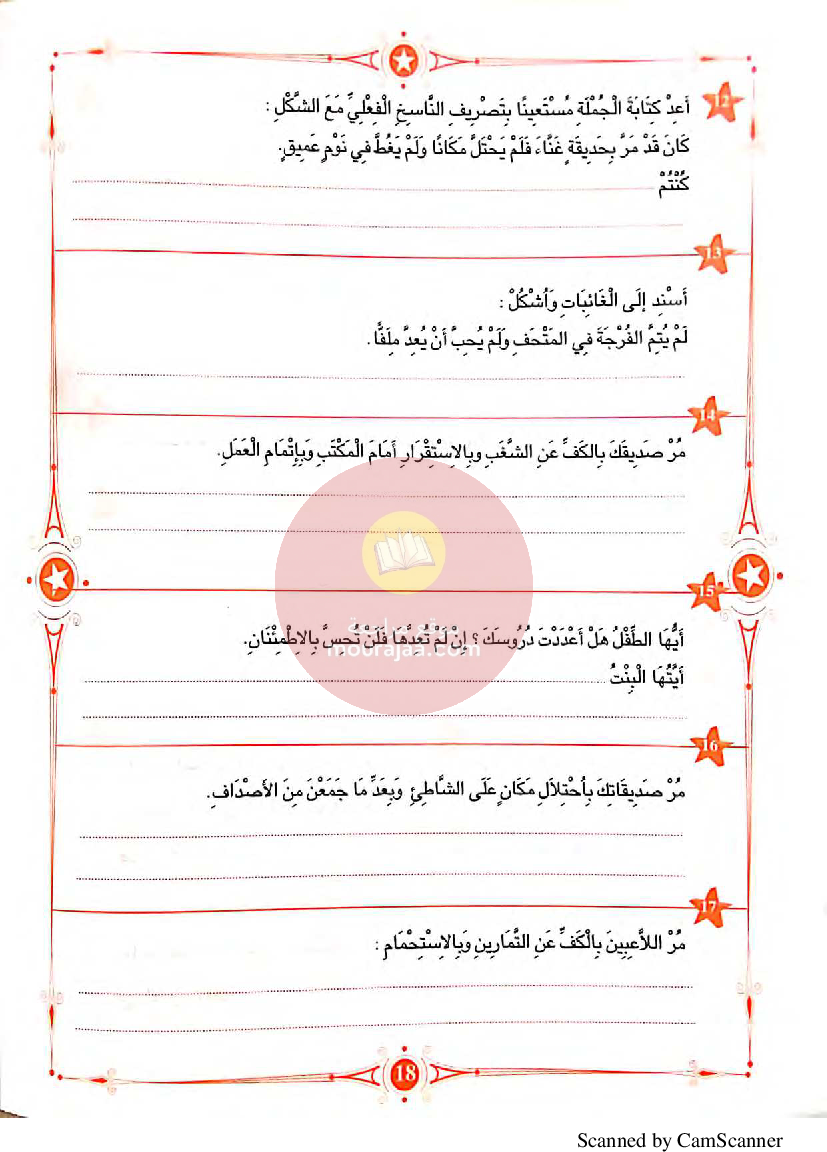 12
أَعِدْ كِتَابَةَ الْجُمْلَةِ مُسْتَعِينًا بِتَصْرِيفِ النَّاسِخِ الْفِعْلِيِّ مَعَ الشَّكْلِ :
كَانَ قَدْ مَرَّ بِحَدِيقَةٍ غَنَّاءَ فَلَمْ يَحْتَلَّ مَكَانًا وَلَمْ يَغُطَّ فِي نَوْمٍ عَمِيقٍ.
كُنْتُمْ
13
أَسْنِد إِلَى الْغَائِبَاتِ وَاُشْكُلْ :
لَمْ يُتِمَّ الفُرْجَةَ فِي المَتْحَفِ وَلَمْ يُحِبَّ أَنْ يُعِدَّ مِلَفًّا.
14
مُرْ صَدِيقَكَ بِالكَفِّ عَنِ الشَّغَبِ وبِالاِسْتِقْرَارِ أَمَامَ الْمَكْتَبِ وَبِإِتْمَامِ الْعَمَلِ.
15
أَيُّهَا الطِّفْلُ هَلْ أَعْدَدْتَ دُرُوسَكَ؟ إِنْ لَمْ تُعِدَّهَا فَلَنْ تُحِسَّ بِالاِطْمِئْنَانِ.
موقع مراجعة
mourajaa.com
أَيَّتُهَا الْبِنْتُ
16
مُرْ صَدِيقَاتِكَ بِاُحْتِلاَلِ مَكَانٍ عَلَى الشَّاطِئِ وَبِعَدِّ مَا جَمَعْنَ مِنَ الأَصْدَافِ.
17
مُرْ اللاَّعِبِينَ بِالْكَفِّ عَنِ التَّمَارِينِ وَبِالاِسْتِحْمَامِ :
18
Scanned by CamScanner